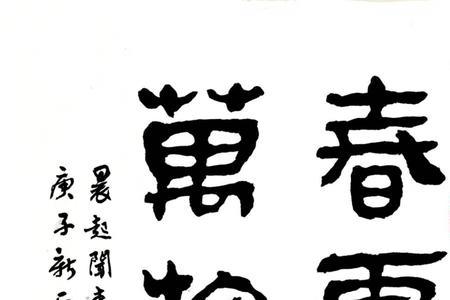 春
萬物
晨起聞
庚子新